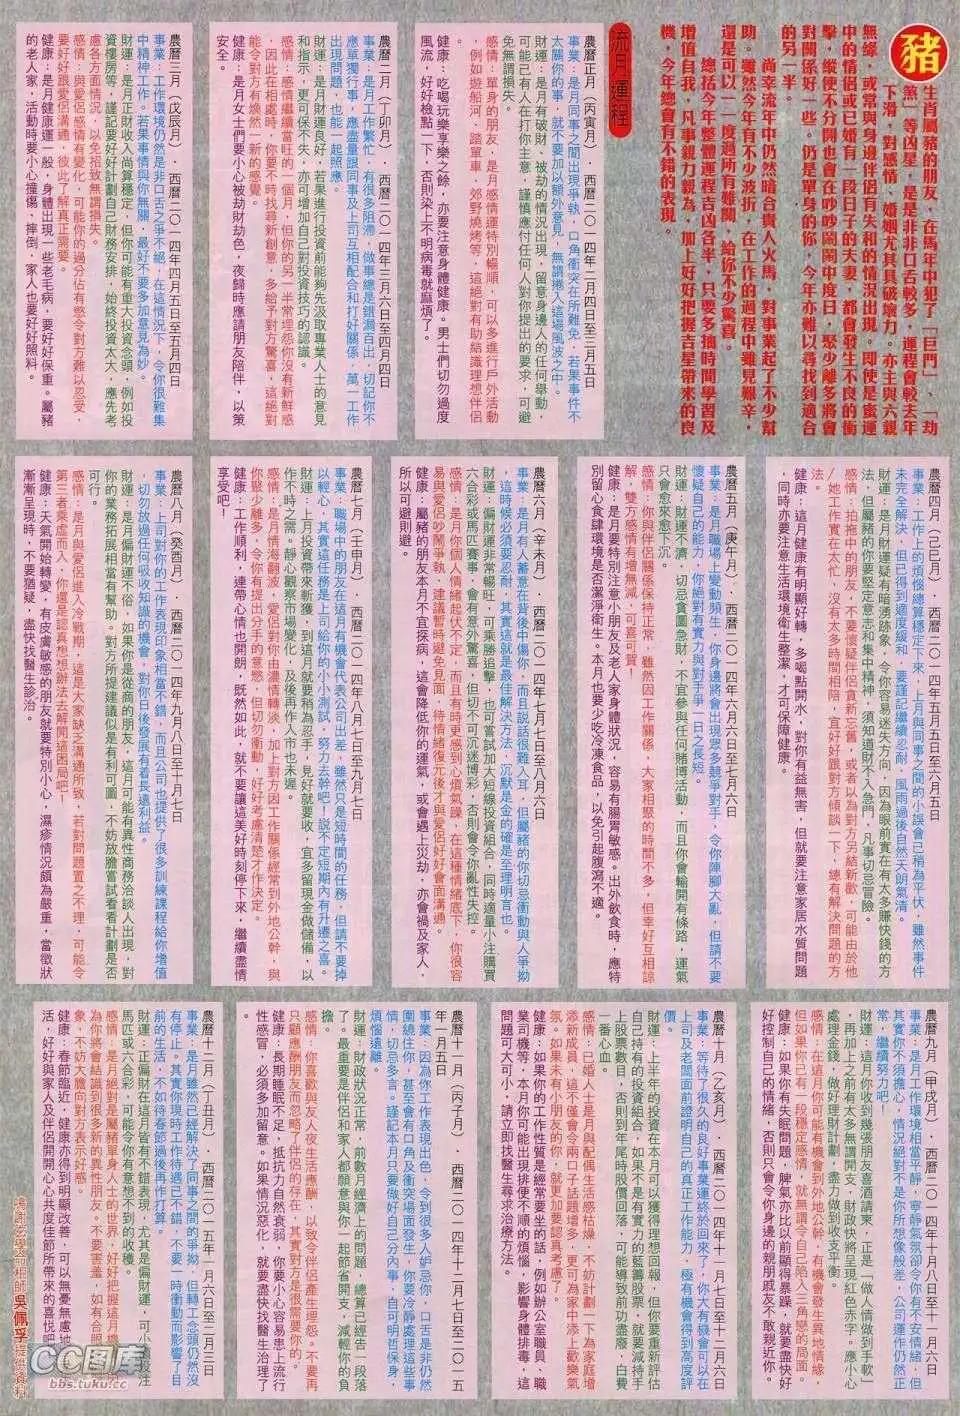 豬
生肖屬豬的朋友，在馬年中犯了「巨門」、「劫
煞」等凶星，是是非非口舌較多，運程會較去年
下滑，對感情、婚姻尤其具破壞力。亦主與六親
無緣，或常與身邊伴侶有失和的情況出現。即使是蜜運
中的情侶或已婚有一段日子的夫妻，都會發生不良的衝
擊，縱使不分開也會在吵吵鬧鬧中度日，聚少離多將會
對關係好一些。仍是單身的你，今年亦難以尋找到適合
的另一半。
尚幸流年中仍然暗合貴人火馬，對事業起了不少幫
助。雖然今年有不少波折，在工作的過程中雖見艱辛，
還是可以一一度過所有難關，給你不少驚喜。
總括今年整體運程吉凶各半，只要多抽時間學習及
增值自我，凡事親力親為，加上好好把握吉星帶來的良
機，今年總會有不錯的表現。
流月運程
農曆正月（丙寅月）．西曆二〇一四年二月四日至三月五日
事業：是月同事之間出現爭執，口角衝突在所難免，若果事件不
太關你的事，就不要加以額外意見，無謂捲入這場風波之中。
財運：是月有破財、被劫的情況出現，留意身邊人的任何舉動，
可能已有人在打你主意，謹慎應付任何人對你提出的要求，可避
免無謂損失。
感情：單身的朋友，是月感情運特別暢順，可以多進行戶外活動
，例如遊船河、踏單車、郊野燒烤等，這絕對有助結識理想伴侶
健康：吃喝玩樂享樂之餘，亦要注意身體健康。男士們切勿過度
風流，好好檢點一下，否則染上不明病毒就麻煩了。
農曆二月（丁卯月）．西曆二〇一四年三月六日至四月四日
事業：是月工作繁忙，有很多阻滯，做事總是錯漏百出，切記你不
應單獨行事，應盡量跟同事及上司互相配合和打好關係，萬一工作
出現問題，也能一起照應。
財運：是月財運良好，若果進行投資前能夠先汲取專業人士的意見
和指示，更可保不失，亦可增加自己對投資技巧的認識。
感情：感情繼續當旺的一個月，但你的另一半常埋怨你沒有新鮮感
，因此在相處時，你要不時找尋新創意，多給予對方驚喜，這絕對
能令對方有煥然一新的感覺。
健康：是月女士們要小心被劫財劫色，夜歸時應請朋友陪伴，以策
安全。
農曆三月（戊辰月）．西曆二〇一四年四月五日至五月四日
事業：工作環境仍然是非口舌之爭不絕，在這情況下，令你很難集
中精神工作。若果事情與你無關，最好不要多加意見為妙。
財運：是月正財收入尚算穩定，但你可能有重大投資念頭，例如投
資樓房等，謹記要好好計劃自己財務安排，始終投資太大，應先考
慮各方面情況，以免招致無謂損失。
感情：與愛侶感情有變化，可能你的過分佔有慾令對方難以忍受，
要好好跟愛侶溝通，彼此了解真正需要。
健康：是月健康運一般，身體出現一些老毛病，要好好保重。屬豬
的老人家，活動時要小心撞傷、摔倒，家人也要好好照料。
農曆四月（己巳月）．西曆二〇一四年五月五日至六月五日
事業：工作上的煩惱總算穩定下來，上月與同事之間的小誤會已稍為平伏，雖然事件
未完全解決，但已得到適度緩和，要謹記繼續忍耐，風雨過後自然天朗氣清。
財運：是月財運疑有暗湧跡象，令你容易迷失方向，因為眼前實在有太多賺快錢的方
法，但屬豬的你要堅定意志和集中精神，須知道財不入急門，凡事切忌冒險。
感情：拍拖中的朋友，不要懷疑伴侶貪新忘舊，或者以為對方另結新歡，可能由於他
／她工作實在太忙，沒有太多時間相陪，宜好好跟對方傾談一下，總有解決問題的方
法。
健康：這月健康有明顯好轉，多喝點開水，對你有益無害，但就要注意家居水質問題
，同時亦要注意生活環境衛生整潔，才可保障健康。
農曆五月（庚午月）．西曆二〇一四年六月六日至七月六日
事業：是月職場上變動頻生，你身邊將會出現眾多競爭對手，令你陣腳大亂，但請不要
懷疑自己的能力，你絕對有實力與對手爭一日之長短。
財運：財運不濟，切忌貪圖急財，不宜參與任何賭博活動，而且你會輸開有條路，運氣
只會愈來愈下沉。
感情：你與伴侶關係保持正常，雖然因工作關係，大家相聚的時間不多，但幸好互相諒
解，雙方感情有增無減，可喜可賀！
健康：是月要特別注意小朋友及老人家身體狀況，容易有腸胃敏感。出外飲食時，應特
別留心食肆環境是否潔淨衛生。本月也要少吃冷凍食品，以免引起腹瀉不適。
農曆六月（辛未月）．西曆二〇一四年七月七日至八月六日
事業：是月有人蓄意在背後中傷你，而且說話很難入耳，但屬豬的你切忌衝動與人爭拗
，這時候必須要忍耐，其實這就是最佳解決方法，沉默是金的確是至理明言也。
財運：偏財運非常暢旺，可乘勝追擊，也可嘗試加大短線投資組合，同時適量小注購買
六合彩或馬匹賽事，會有意外驚喜，但切不可沉迷博彩，否則會令你亂性失控。
感情：是月你個人情緒起伏不定，而且有時更感到心煩氣躁，在這種情緒底下，你很容
易與愛侶吵鬧爭執，建議暫時避免見面，待情緒復元後才與愛侶好好會面溝通。
健康：屬豬的朋友在本月不宜探病，這會降低你的運氣，或會遇上災劫，亦會禍及家人，
所以可避則避。
農曆七月（壬申月）．西曆二〇一四年八月七日至九月七日
事業：職場中的朋友在這月有機會代表公司出差，雖然只是短時間的任務，但請不要掉
以輕心，其實這任務是上司給你的小小測試，努力去幹吧！說不定短期內有升遷之喜。
財運：上月投資帶來斬獲，到這月就要稍為忍手，見好就要收，宜多留現金做儲備，以
作不時之需。靜心觀察市場變化，及後再作入市也未遲。
感情：是月情海翻波，愛侶對你由濃情轉淡，加上對方因工作關係經常到外地公幹，與
你聚少離多，令你有提出分手的意慾，但切勿衝動，好好考慮清楚才作決定。
健康：工作順利，連帶心情也開朗，既然如此，就不要讓這美好時刻停下來，繼續盡情
享受吧！
農曆八月（癸酉月）．西曆二〇一四年九月八日至十月七日
事業：上司對你的工作表現印象相當不錯，而且公司也提供了很多訓練課程給你增值
，切勿放過任何吸收知識的機會，對你日後發展有着長遠利益。
財運：是月偏財運不俗，如果你是從商的朋友，這月可能有異性商務洽談人出現，對
你的業務拓展相當有幫助。對方所提建議似是有利可圖，不妨放膽嘗試看看計劃是否
可行。
感情：是月與愛侶進入冷戰期，這是大家缺乏溝通所致，若對問題置之不理，可能令
第三者乘虛而入，你還是認真想想辦法去解開這困局吧！
健康：天氣開始轉變，有皮膚敏感的朋友就要特別小心，濕疹情況頗為嚴重，當徵狀
漸漸呈現時，不要猶疑，盡快找醫生診治。
農曆九月（甲戌月）．西曆二〇一四年十月八日至十一月六日
事業：是月工作環境相當平靜，寧靜氣氛卻令你有不安情緒，但
其實你不須擔心，情況絕對不是你所想像般差，公司運作仍然正
常，繼續努力吧！
財運：這月你收到幾張朋友喜酒請柬，正是「做人情做到手軟」
，再加上之前有太多無謂開支，財政快將呈現紅色赤字。應小心
處理金錢，做好理財計劃，盡力做到收支平衡。
感情：在這月你可能有機會到外地公幹，有機會發生異地情緣，
但如果你已有一段穩定感情，就無謂令自己陷入三角戀的局面。
健康：如果你有失眠問題，脾氣亦比以前顯得暴躁，就要盡快好
好控制自己的情緒，否則只會令你身邊的親朋戚友不敢親近你。
農曆十月（乙亥月）．西曆二〇一四年十一月七日至十二月六日
事業：等待了很久的良好事業運終於回來了，你大有機會可以在
上司及老闆面前證明自己的真正工作能力，極有機會得到高度評
價。
財運：上半年的投資在本月可以獲得理想回報，但你要重新評估
自己持有的投資組合，如果不是有實力的藍籌股票，就要減持手
上股票數目，否則到年尾時股價回落，可能導致前功盡廢，白費
一番心血。
感情：已婚人士是月與配偶生活感情枯燥，不妨計劃一下為家庭增
添新成員，這不僅會令兩口子話題增多，更可為家中添上歡樂氣
氛。如果未有小朋友的你，就更加要認真考慮了。
健康：如果你的工作性質是經常要坐的話，例如辦公室職員、職
業司機等，本月你可能出現排便不順的煩惱，影響身體排毒，這
問題可大可小，請立即找醫生尋求治療方法。
農曆十一月（丙子月）．西曆二〇一四年十二月七日至二〇一五
年一月五日
事業：因為你工作表現出色，令到很多人妒忌你，口舌是非仍然
圍繞住你，甚至會有口角及衝突場面發生，你要冷靜處理這些事
情，切忌多言。謹記本月只要做好自己分內事，自可明哲保身，
煩惱遠離。
財運：財政狀況正常，前數月經濟上的問題，總算已經告一段落
了。最重要是伴侶和家人都願意與你一起節省開支，減輕你的負
擔。
感情：你喜歡與友人夜生活應酬，以致令伴侶產生埋怨。不要再
只顧應酬朋友而忽略了伴侶的存在，其實對方是很需要你的。
健康：長期睡眠不足，抵抗力自然衰弱，你要小心容易患上流行
性感冒，必須多加留意。如果情況惡化，就要盡快找醫生治理了
農曆十二月（丁丑月）．西曆二〇一五年一月六日至二月三日
事業：是月雖然已經解決了同事之間的爭拗，但轉工念頭仍然沒
有停止。其實你現時工作待遇已不錯，不要一時衝動而影響了目
前的生活，不如待春節過後再作打算。
財運：正偏財在這月皆有不錯表現，尤其是偏財運，可小注投注
馬匹或六合彩，可能令你有意想不到的收穫。
感情：是月絕對是屬豬單身人士的世界，好好把握這月機
為你將會結識到很多新的異性朋友。不要害羞，如有合眼
象，不妨大膽向對方表示好感。
健康：春節臨近，健康亦得到明顯改善，可以無憂無慮地
活，好好與家人及伴侶開開心心共度佳節所帶來的喜悅吧
鳴謝玄學命相師吳佩孚提供資料
CC图库
bbs.tuku.cc